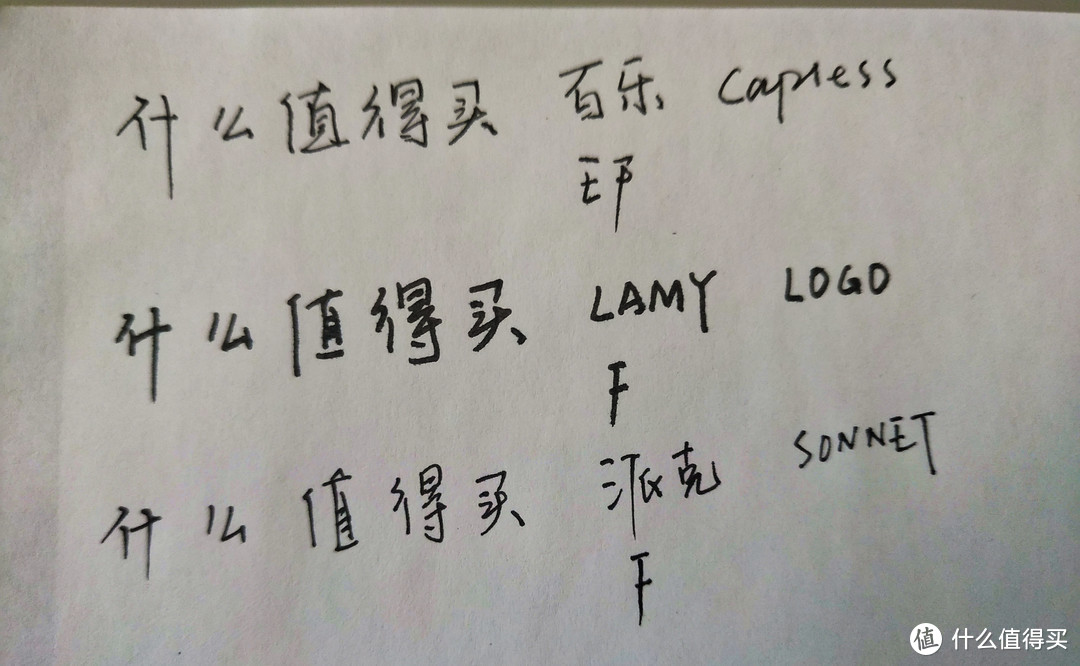 什么值得买 百乐 Capless
EF
什么值得买 LAMY LOGO
F
什么值得买 派克 SONNET
F
值 什么值得买